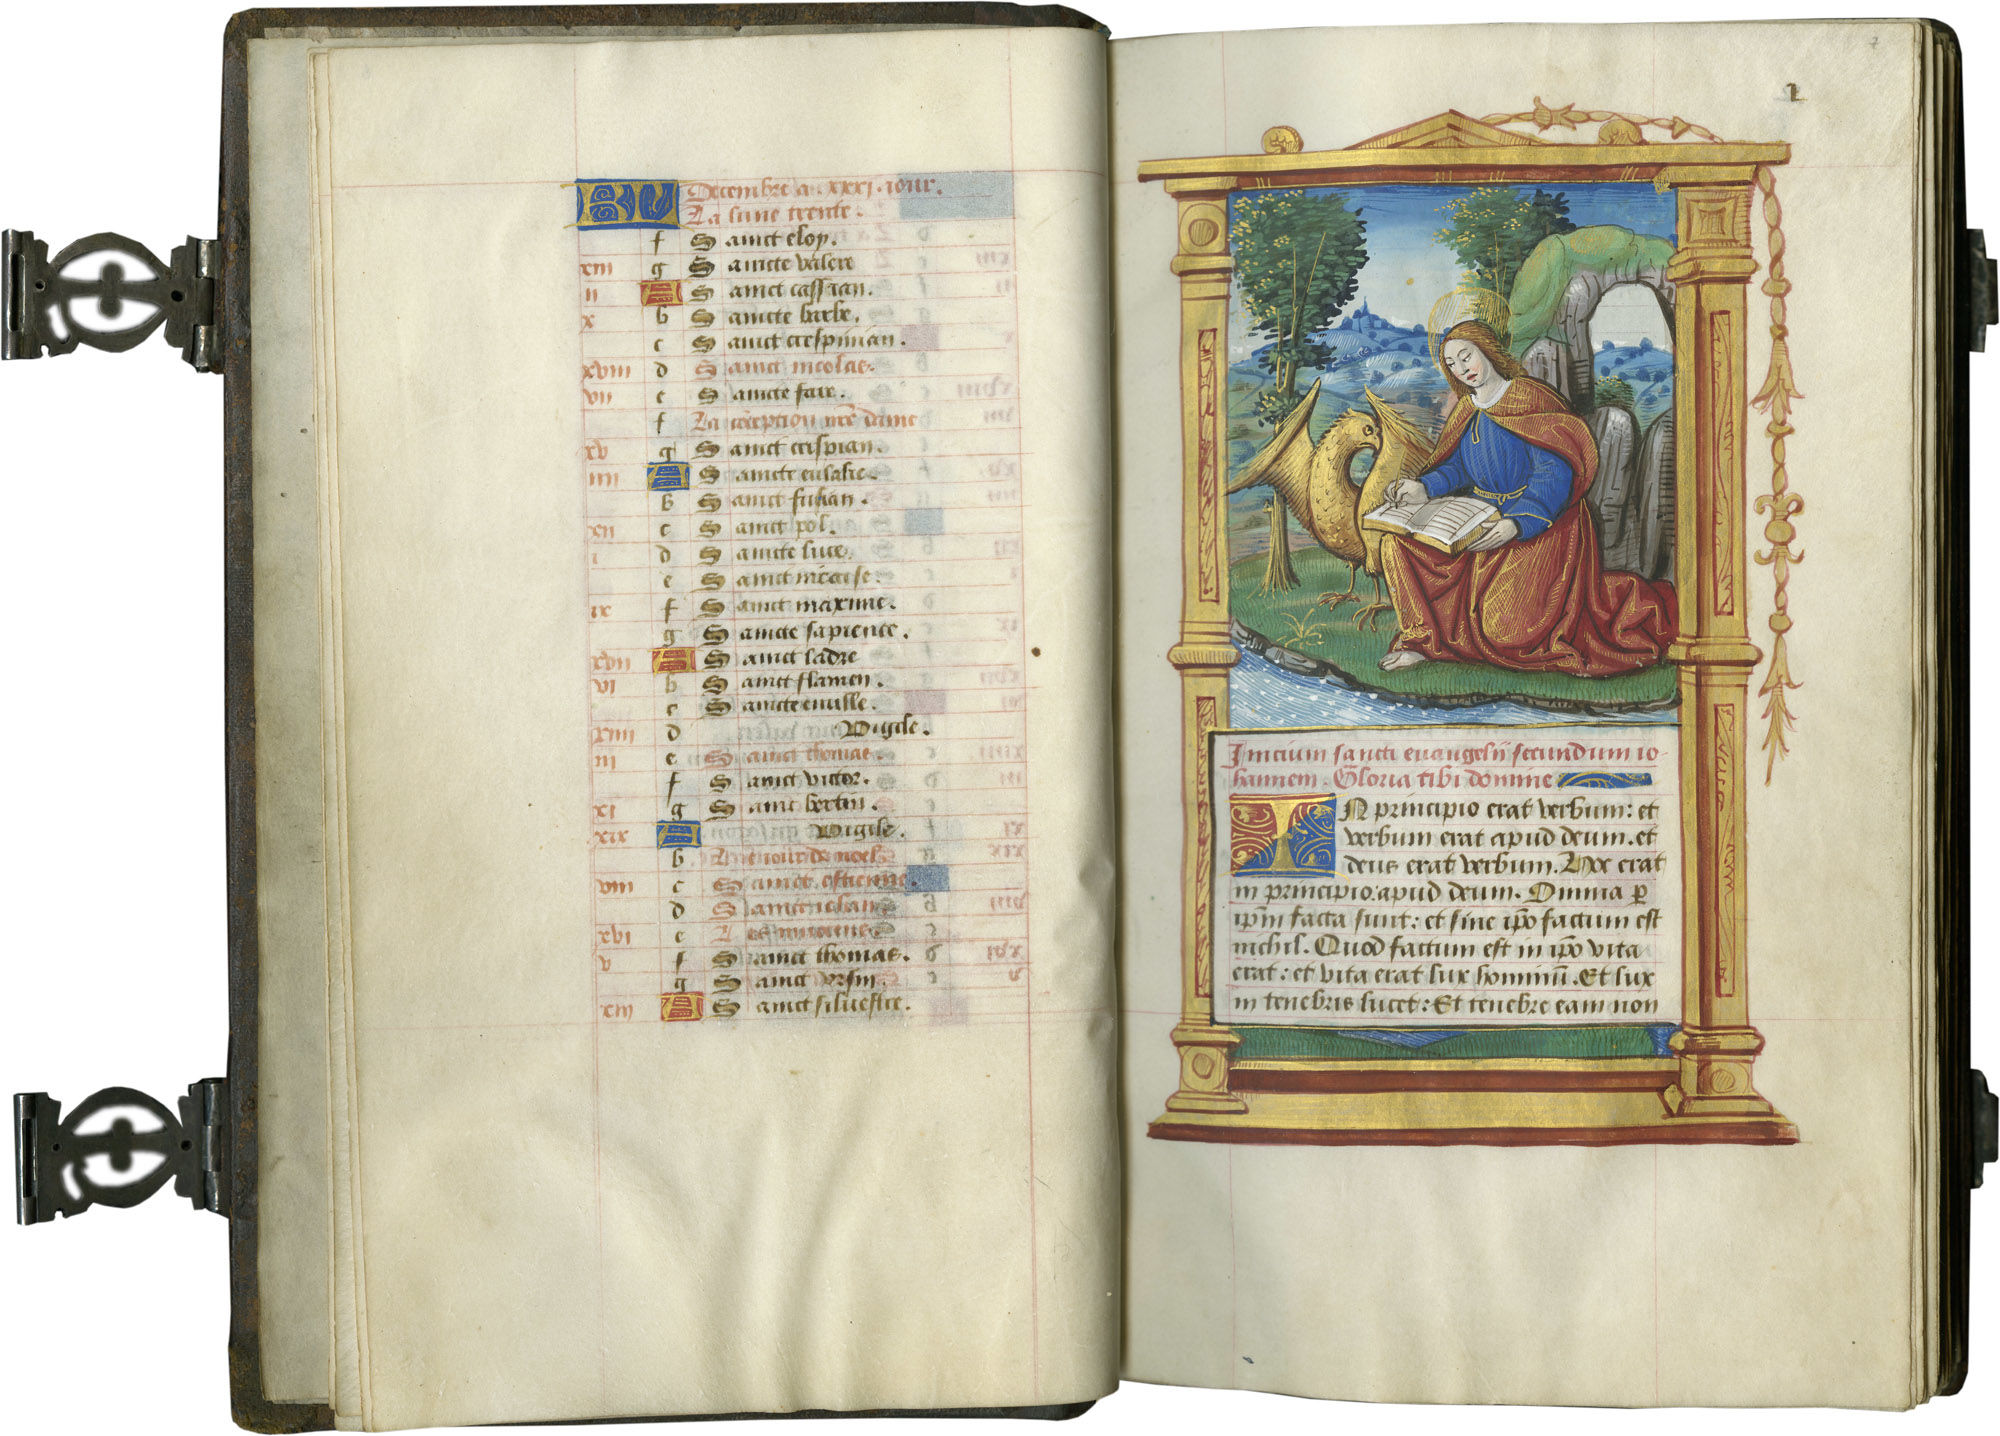 KL Decembre a .xxxi. iour.
La lune trente.
f Sainct eloy.
xiii g Saincte valere
ii A Sainct cassian.
x b Saincte barbe.
c Sainct crespinian.
xviii d Sainct nicolas.
vii e Saincte fare.
f La cōception nr̄e dame
xv g Sainct crispian.
iiii A Saincte eulalie.
b Sainct fusian.
xii c Sainct pol.
i d Saincte luce.
e Sainct nicaise.
ix f Sainct maxime.
g Saincte sapience.
xvii A Sainct ladre
vi b Sainct flamen.
c Saincte
xiiii d Vigile.
iii e Sainct thomas.
f Sainct victor.
xi g Sainct bertin.
xix A Vigile.
b Le iour de noel
viii c Sainct estienne.
d Sainct iehan
xvi e Les innocens
v f Sainct thomas.
g Sainct vrsin.
xiii A Sainct siluestre.
Inicium sancti euangelii secundum io-
hannem. Gloria tibi domine
IN principio erat verbum: et
verbum erat apud deum. et
deus erat verbum. Hoc erat
in principio apud deum. Omnia ꝑ
ip̄m facta sunt: et sine ip̄o factum est
nichil. Quod factum est in ip̄o vita
erat: et vita erat lux hominū. Et lux
in tenebris lucet: Et tenebre eam non